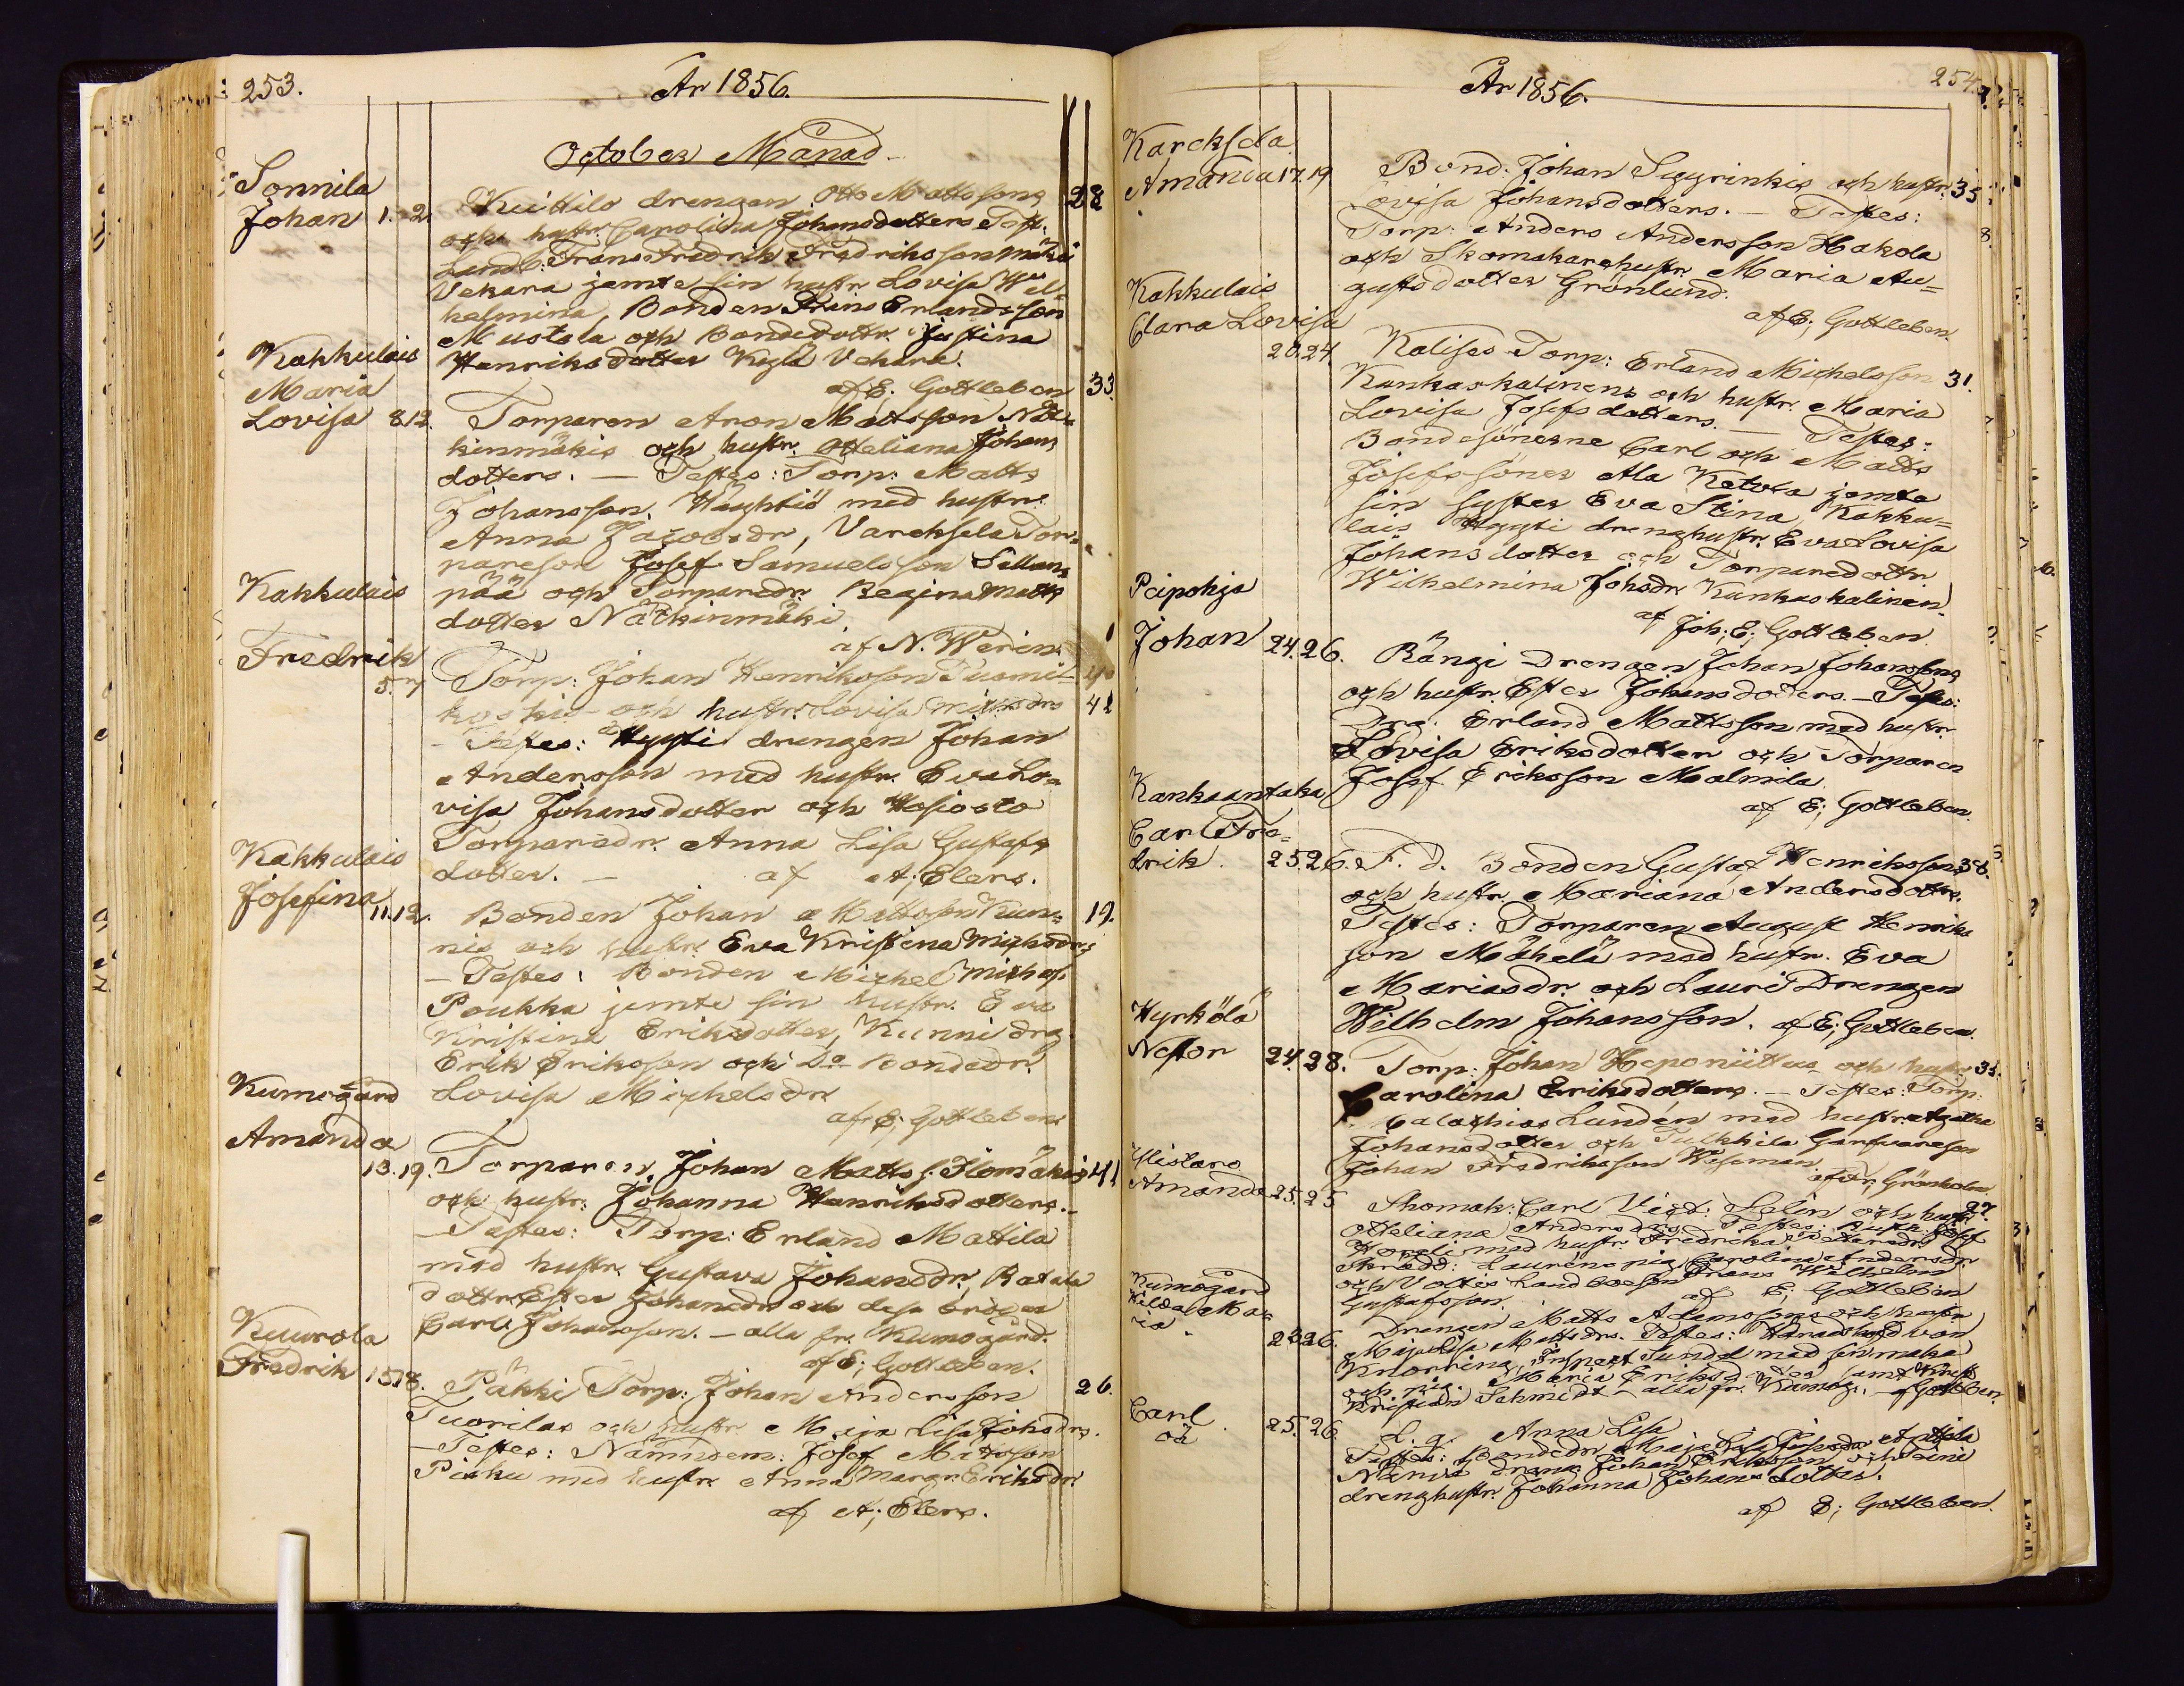 253.
År 1856.
October Månad
Sonnila
Johan 1. 2. Keittilo drengen Otto Mattssons 28
och hustr. Carolina Johansdotters Test.
Landb: Frans Fredrik Fredriksson
Vekara jemte sin hustr. Lovisa Wil=
helmina, Bonden Frans Erlandsson
Mustola och Bondedottr. Justina
Henriksdotter Kylä Vekara.
af E. Gottleben
Kakkulais
Maria
Lovisa 8 12. Torparen Aron Mattsson Nät= 33.
kinmäkis och hustr. Otteliana Johans
dotters. — Testes: Torp: Matts
Johansson Häyhtiö med hustr.
Anna Jacobsdr, Vareksela Tor=
pareson Josef Samuelsson Sillan=
pää och Torparedr. Regina Matts
dotter Nätkinmäki.
af N. Werin.
Kakkulais
Fredrik
5. 7 Torp: Johan Henriksson Tuomi= 40
koskis och hustr. Lovisa Michsdrs 41
— Testes: Hyyti drengen Johan
Andersson med hustr. Eva Lo=
visa Johansdotter och Hosiosto
Torparedr. Anna Lisa Gustafs
dotter. — af A; Elers.
Kakkulais
Josefina
11. 12. Bonden Johan Mattsson Kun= 19.
nis och hustr. Eva Kristina Michsdrs
— Testes: Bonden Michel Michs.
Poukka jemte sin hustr. Eva
Kristina Eriksdotter, Kunni drg.
Erik Eriksson och Do Bondedr.
Lovisa Michelsdr
af E; Gottleben
Kumogård
Amanda
13. 19. Torparen Johan Matts s. Ilomäkis 41
och hustr. Johanna Henriksdotters.
— Testes: Torp: Erland Mattila
med hustr. Gustava Johansdr, Ratala
dottr. Ester Johansdr och dess broder
Carl Johansson. — alla fr. Kumogård.
af E; Gottleben.
Kuurola
Fredrik 15 18. Päkki Torp: Johan Andersson 26.
Tuorilas och hustr. Maja Lisa Johsdrs.
— Testes: Nämndem: Josef Mattsson
Pirku med hustr. Anna Margr. Eriksdr.
af A; Elers.
254.
År 1856.
Kareksela
Amanda 17. 19 Bond: Johan Sygrinkis och hustr. 35
Lovisa Johansdotters. — Testes:
Torp: Anders Andersson Hakola
och Skomakarehustr. Maria Au=
gustsdotter Grönlund.
af E; Gottleben.
Kakkulais
Clara Lovisa
20. 24. Kalises Torp: Erland Michelsson 31.
Kankaskalinens och hustr. Maria
Lovisa Josefsdotters. — Testes:
Bondesönerne Carl och Matts
Josefssöner Ala Ketola jemte
sin syster Eva Stina, Kakku=
lais Hyyti drenghustr. Eva Lovisa
Johansdotter och Torparedottr.
Wilhelmina Johsdr Kankaskalinen.
af Joh; E; Gottleben.
Peipohja
Johan 24. 26. Rängi Drengen Johan Johanssons
och hustr. Ester Johansdotters. — Testes:
Drg. Erland Mattsson med hustr.
Lovisa Eriksdotter och Torparen
Josef Eriksson Malmila.
af E; Gottleben.
Kankaantaka
Carl Fre=
drik. 25. 26. F. D. Bonden Gustaf Henrikssons 38.
och hustr. Mariana Andersdottrs.
Testes: Torparen August Henriks
son Mäkelä med hustr. Eva
Mariasdr. och Lauri Drengen
Wilhelm Johansson. af E; Gottleben.
Hyrkölä
Nestor 24. 28. Torp: Johan Heponiittus och hustr. 35.
Carolina Eriksdotters. — Testes: Torp:
Malachias Lundén med hustr. Agatha
Johansdotter och Tulkkila Garfvareson
Johan Fredriksson Wesman.
af Fr; Grönholm.
Ylistaro
Amanda 25. 25 Skomak: Carl Vict: Selin och hustr. 27.
Otteliana Andersdrs — Testes: Josef
med hustr. Fredrika
Skrädd: Lauréns pig. Carolina Andersdr
och Voltes Landboeson Frans Wilhelm
Gustafsson. af E; Gottleben
Kumogård
Hilda Ma=
ria 23 26. Drengen Matts Adamssons och hustr.
Maja Lisa Mattsdrs. Testes: Häradshöfd von
Knorring, Inspect Sundel med sin maka
och pig. Maria Eriksdotter samt
Kristian Schmidt — alla fr. Kumog. — af Gottleben.
Carl 25. 26. L. g. Anna Lisa
oä
Testes: Bondedr Maja Lisa Attila
Drenge Johan Eriksson och
drenghustr. Johanna Johansdotter.
af E; Gottleben.